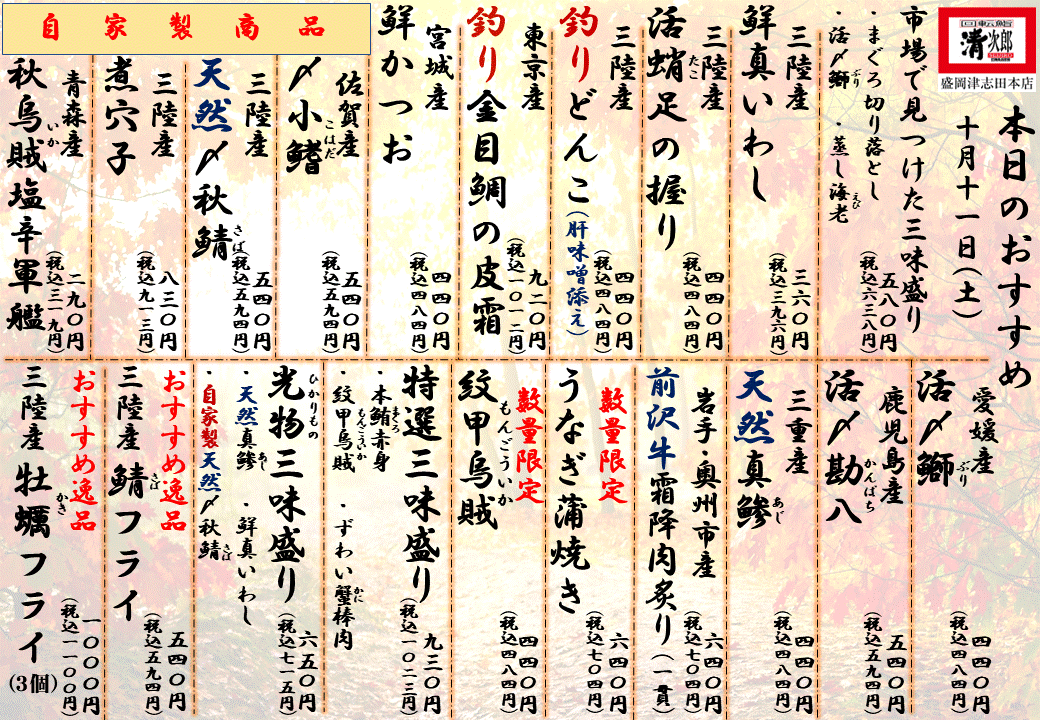 回転鮨
清次郎
盛岡津志田本店
本日のおすすめ
十月十一日(土)
市場で見つけた三味盛り
・まぐろ切り落とし
・活〆鰤 ・蒸し海老
ぶり
えび
五八〇円
(税込六三八円)
三陸産
鮮真いわし
三六〇円
(税込三九六円)
三陸産
活蛸足の握り
たこ
四四〇円
(税込四八四円)
三陸産
釣りどんこ(肝味噌添え)
四四〇円
(税込四八四円)
東京産
釣り金目鯛の皮霜
九二〇円
(税込一〇一二円)
宮城産
鮮かつお
四四〇円
(税込四八四円)
自家製商品
佐賀産
〆小鰭
こはだ
五四〇円
(税込五九四円)
三陸産
天然〆秋鯖
さば
五四〇円
(税込五九四円)
三陸産
煮穴子
八三〇円
(税込九一三円)
青森産
秋烏賊塩辛軍艦
いか
二九〇円
(税込三一九円)
愛媛産
活〆鰤
ぶり
四四〇円
(税込四八四円)
鹿児島産
活〆勘八
かんぱち
五四〇円
(税込五九四円)
三重産
天然真鯵
あじ
四四〇円
(税込四八四円)
岩手・奥州市産
前沢牛霜降肉炙り(一貫)
六四〇円
(税込七〇四円)
数量限定
うなぎ蒲焼き
六四〇円
(税込七〇四円)
数量限定
紋甲烏賊
もんごういか
四四〇円
(税込四八四円)
特選三味盛り
・本鮪赤身
まぐろ
・紋甲烏賊 ・ずわい蟹棒肉
もんごういか
かに
九三〇円
(税込一〇二三円)
光物三味盛り
ひかりもの
・天然真鯵 ・鮮真いわし
あじ
・自家製天然〆秋鯖
さば
六五〇円
(税込七一五円)
おすすめ逸品
三陸産 鯖フライ
さば
五四〇円
(税込五九四円)
おすすめ逸品
三陸産 牡蠣フライ(3個)
かき
一〇〇〇円
(税込一一〇〇円)